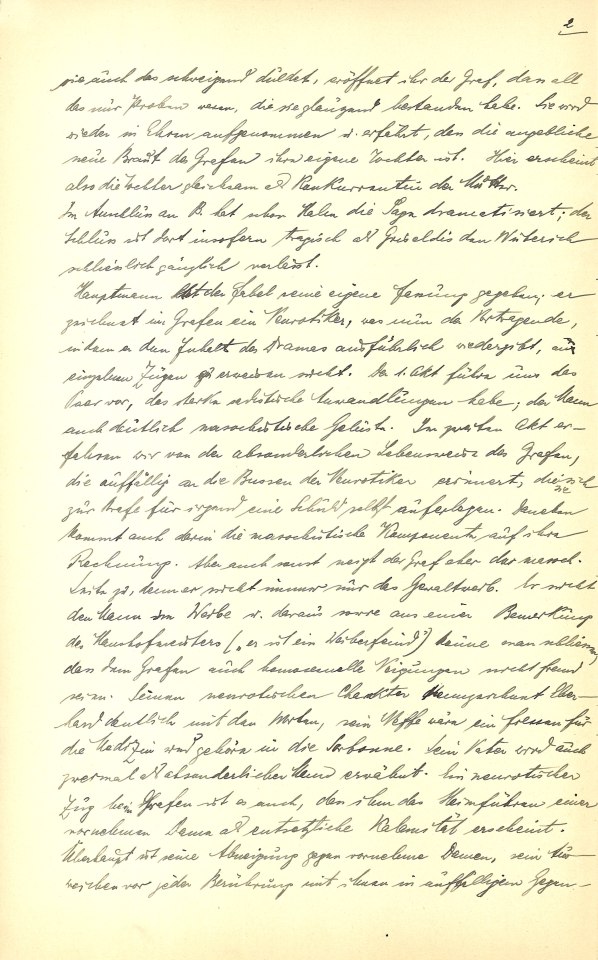 2
sie auch das schweigend duldet, eröffnet ihr der Graf, dass all
das nur Proben waren, die sie glänzend bestanden habe. Sie wird
wieder in Ehren aufgenommen u. erfährt, dass die angebliche
neue Braut des Grafen ihre eigene Tochter ist. Hier erscheint
also die Tochter gleichsam als Konkurrentin der Mutter.
Im Anschluss an B. hat schon Halm die Sage dramatisiert; der
Schluss ist dort insofern tragisch als Griseldis den Wüterich
schliesslich gänglich verlässt.
Hauptmann hat der Fabel seine eigene Fassung gegeben; er
zeichnet im Grafen ein Neurotiker, was nun der Vortragende,
indem er den Inhalt des Dramas ausführlich wiedergibt, aus
einzelnen Zügen zu erweisen sucht. Der 1. Akt führe uns das
Paar vor, das starke sadistische Anwandlungen habe; der Mann
auch deutlich masochistische Gelüste. Im zweiten Akt er-
fahren wir von der absonderlichen Lebensweise des Grafen,
die auffällig an die Bussen der Neurotiker erinnert, die sie sich
zur Strafe für irgend eine Schuld selbst auferlegen. Daneben
kommt auch darin die masochistische Komponente auf ihre
Rechnung. Aber auch sonst neigt der Graf eher der masoch.
Seite zu, denn er sucht immer nur das Gewaltweib. Er sucht
den Mann im Weibe u. daraus sowie aus einer Bemerkung
des Haushofmeisters („er ist ein Weiberfeind“) könne man schliessen,
dass dem Grafen auch homosexuelle Neigungen nicht fremd
seien. Seinen neurotischen Charakter kennzeichnet Eber-
hard deutlich mit den Worten, sein Neffe wäre ein Fressen für
die Medizin und gehöre in die Sorbonne. Sein Vater wird auch
zweimal als absonderlicher Mensch erwähnt. Ein neurotischer
Zug beim Grafen ist es auch, dass ihm das Heimführen einer
vornehmen Dame als entsetzliche Kalamität erscheint.
Überhaupt ist seine Abneigung gegen vornehme Damen, sein Aus-
weichen vor jeder Berührung mit ihnen in auffälligem Gegen-